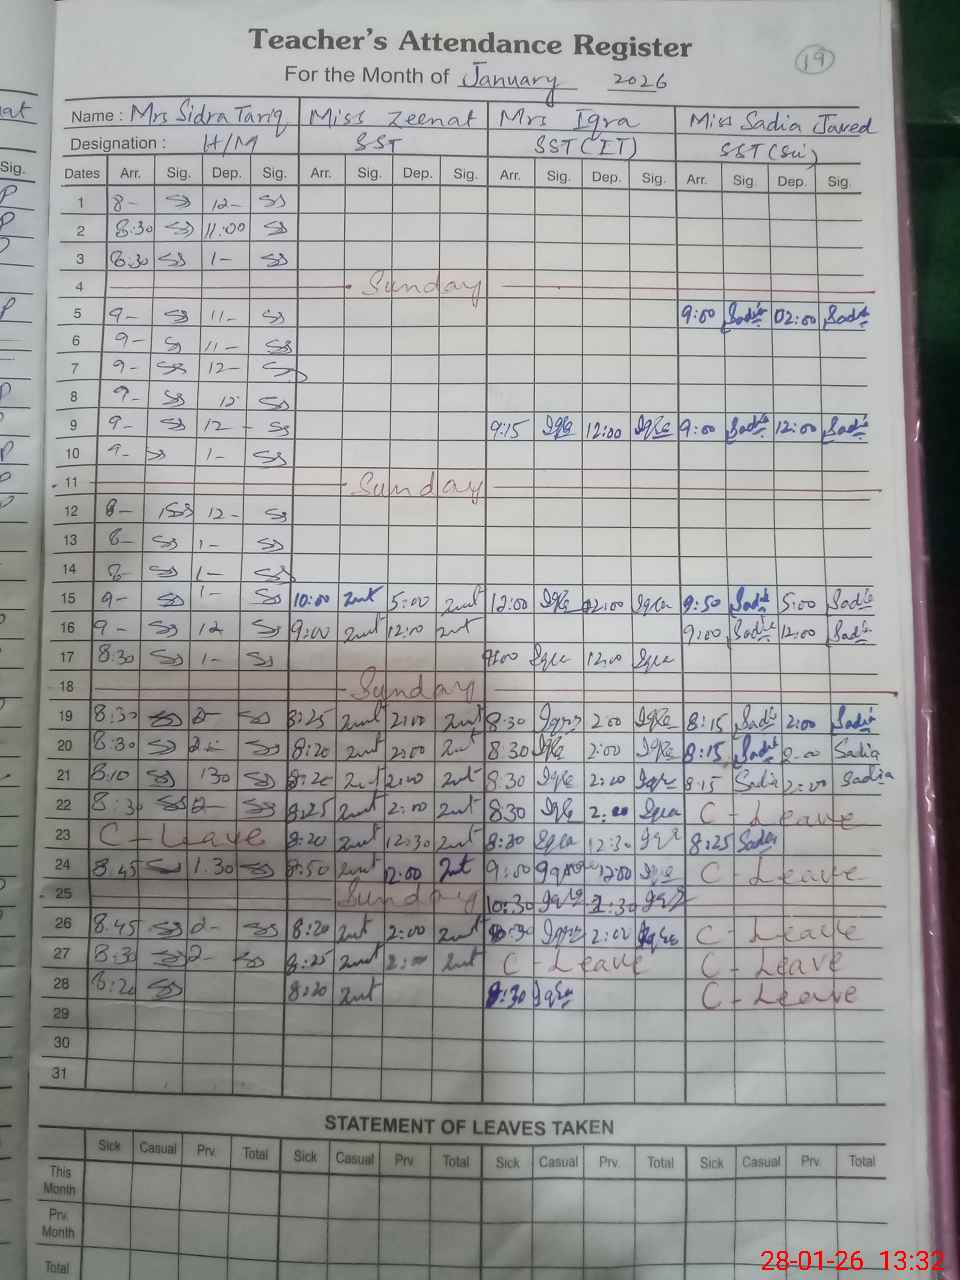 Teacher's Attendance Register
19
For the Month of January 2026
Name : Mrs Sidra Tariq Miss Zeenat Mrs Iqra Miss Sadia Javed
Designation : H/M SST SST (IT) SST (Sci)
Dates Arr. Sig. Dep. Sig. Arr. Sig. Dep. Sig. Arr. Sig. Dep. Sig. Arr. Sig. Dep. Sig.
1 8- SS 12- SS
2 8:30 SS 11:00 SS
3 8:30 SS 1- SS
4 Sunday
5 9- SS 11- SS 9:00 Sadia 02:00 Sadia
6 9- S 11- SS
7 9- SS 12- SS
8 9- SS 12 SS
9 9- SS 12 - SS 9:15 Iqra 12:00 Iqra 9:00 Sadia 12:00 Sadia
10 9- SS 1- SS
11 Sunday
12 8- SS 12- SS
13 8- SS 1- SS
14 8- SS 1- SS
15 9- SS 1- SS 10:00 znt 5:00 znt 12:00 Iqra Iqra 9:50 Sadia 5:00 Sadia
16 9- SS 12 SS 9:00 znt 12:00 znt 9:00 Sadia 12:00 Sadia
17 8:30 SS 1- SS Iqra 12:00 Iqra
18 Sunday
19 8:30 SS 2- SS 8:25 znt 2:00 znt 8:30 Iqra 2:00 Iqra 8:15 Sadia 2:00 Sadia
20 8:30 SS 2- SS 8:20 znt 2:00 znt 8:30 Iqra 2:00 Iqra 8:15 Sadia 2:00 Sadia
21 8:10 SS 1:30 SS 8:20 znt 2:00 znt 8:30 Iqra 2:00 Iqra 8:15 Sadia 2:00 Sadia
22 8:30 SS 2- SS 8:25 znt 2:00 znt 8:30 Iqra 2:00 Iqra C-Leave
23 C-Leave 8:20 znt 12:30 znt 8:30 Iqra 12:30 Iqra 8:25 Sadia
24 8.45 SS 1.30 SS 8:50 znt 12:00 znt 9:00 Iqra 12:00 Iqra C-Leave
25 Sunday 10:30 Iqra Iqra
26 8.45 SS 2- SS 8:20 znt 2:00 znt Iqra 2:00 Iqra C-Leave
27 8:30 SS 2- SS 8:25 znt 2:00 znt C-Leave C-Leave
28 8:20 SS 8:20 znt 8:30 Iqra C-Leave
29
30
31
STATEMENT OF LEAVES TAKEN
Sick Casual Prv. Total Sick Casual Prv. Total Sick Casual Prv. Total Sick Casual Prv. Total
This Month
Prv. Month
Total
28-01-26 13:32